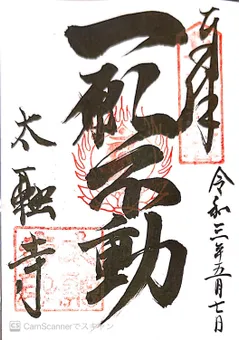 奉拝
一願不動
令和三年五月七日
太融寺
CamScannerでスキャン